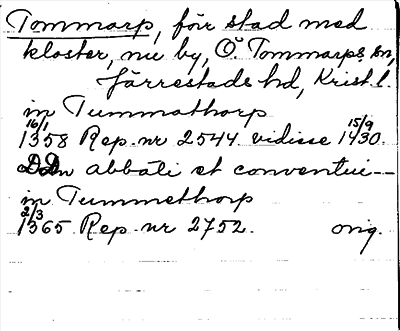 Tommarp, förr stad med
kloster, nu by, Ö. Tommarps sn,
Järrestads hd, Krist. l.
in Tummathorp
16/1 1358 Rep. nr 2544 vidisse 15/9 1430.
abbati et conventui --
in Tummethorp
2/3 1365 Rep. nr 2752. orig.